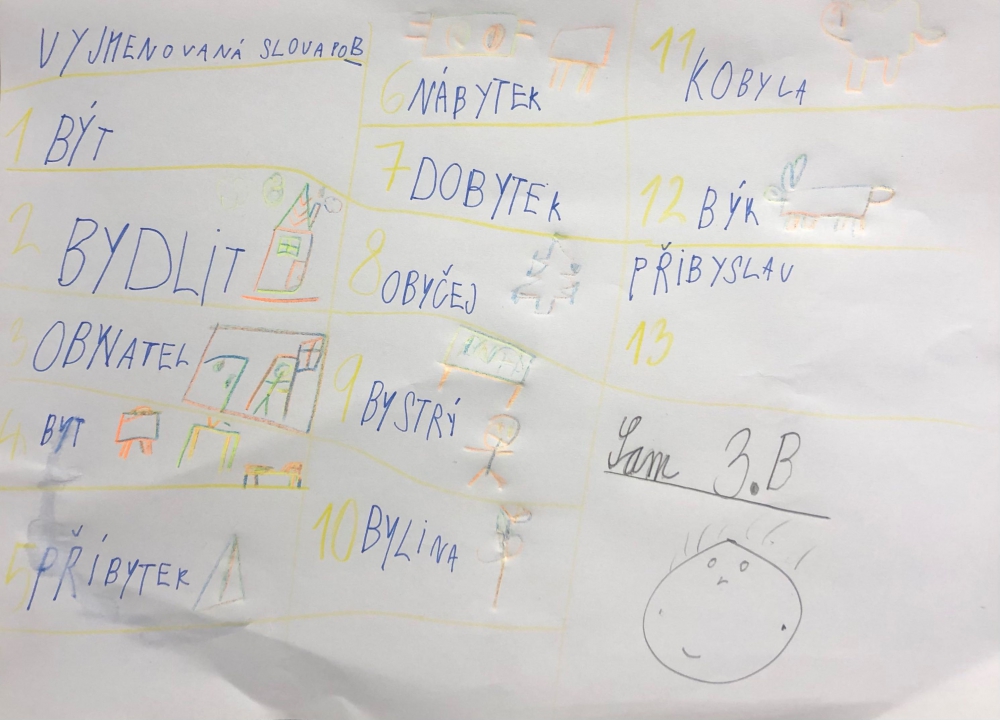 VYJMENOVANÁ SLOVA PO B
1 BÝT
2 BYDLIT
3 OBYVATEL
4 BYT
5 PŘÍBYTEK
6 NÁBYTEK
7 DOBYTEK
8 OBYČEJ
9 BYSTRÝ
10 BYLINA
11 KOBYLA
12 BÝK
PŘIBYSLAV
13
Sam 3.B